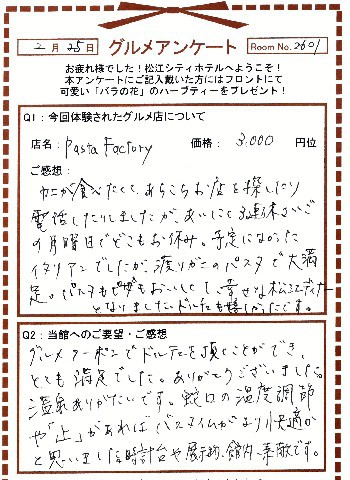 2月25日 グルメアンケート Room No.2601
お疲れ様でした!松江シティホテルへようこそ!
本アンケートにご記入戴いた方にはフロントにて
可愛い「バラの花」のハーブティーをプレゼント!
Q1:今回体験されたグルメ店について
店名: Pasta Factory 価格: 3,000 円位
ご感想:
カニが食べたくて、あちらこちらお店を探したり
電話したりしましたが、あいにく3連休さいご
の月曜日でどこもお休み。予定になかった
イタリアンでしたが、渡りがにのパスタで大満
足。パスタもピザもおいしくて、幸せな松江ディナー
となりました。ドルチェも嬉しかったです。
Q2:当館へのご要望・ご感想
グルメクーポンでドルチェを頂くことができ、
とても満足でした。ありがとうございました。
温泉ありがたいです。蛇口の温度調節
や「止」があればバスタイムがより快適か
と思いました。時計台や展示物、館内素敵です。